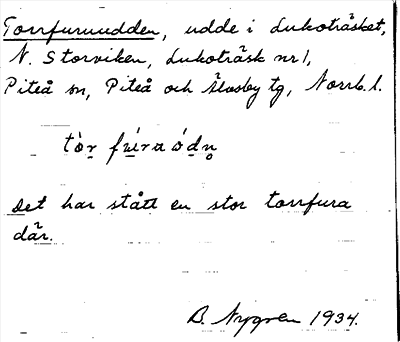 Torrfuruudden, udde i Lukoträsket,
N. Storviken, Lukoträsk nr 1,
Piteå sn, Piteå och Älvsby tg, Norrb. l.
tòr fúra ódn
Det har stått en stor torrfura
där.
B. Nygren 1934.